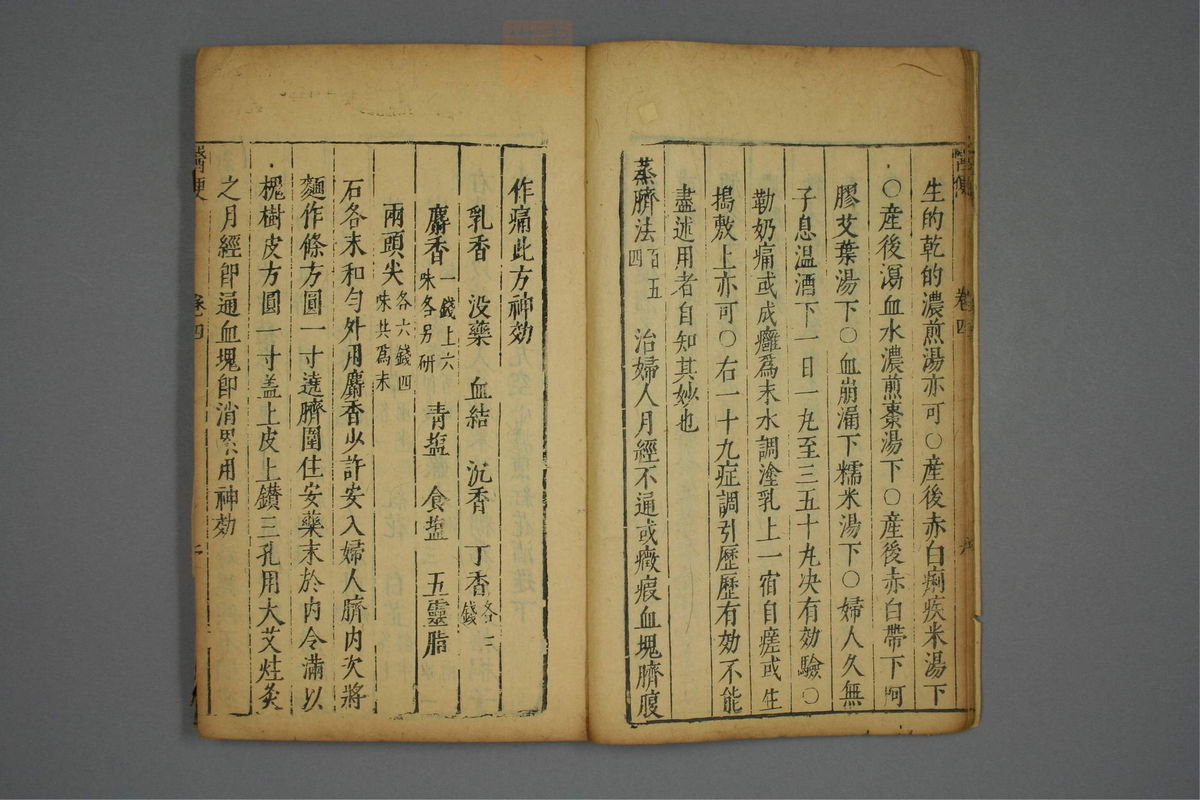 醫便
卷四
生的乾的濃煎湯亦可○產後赤白痢疾米湯下
○產後瀉血水濃煎棗湯下○產後赤白帶下阿
膠艾葉湯下○血崩漏下糯米湯下○婦人久無
子息温酒下一日一丸至三五十丸决有効驗○
勒奶痛或成癰為末水調塗乳上一宿自瘥或生
搗敷上亦可○右一十九症調引歷歷有効不能
盡述用者自知其妙也
蒸臍法百五四 治婦人月經不通或癥瘕血塊臍腹
作痛此方神効
乳香 没藥 血結 沉香 丁香各三錢
麝香一錢上六味各另研 青塩 食塩 五靈脂
兩頭尖各六錢四味共爲末
右各末和勻外用麝香少許安入婦人臍内次將
麵作條方圓一寸遶臍圍住安藥末於内令滿以
槐樹皮方圓一寸盖上皮上鑚三孔用大艾炷灸
之月經即通血塊即消累用神効
醫便
卷四